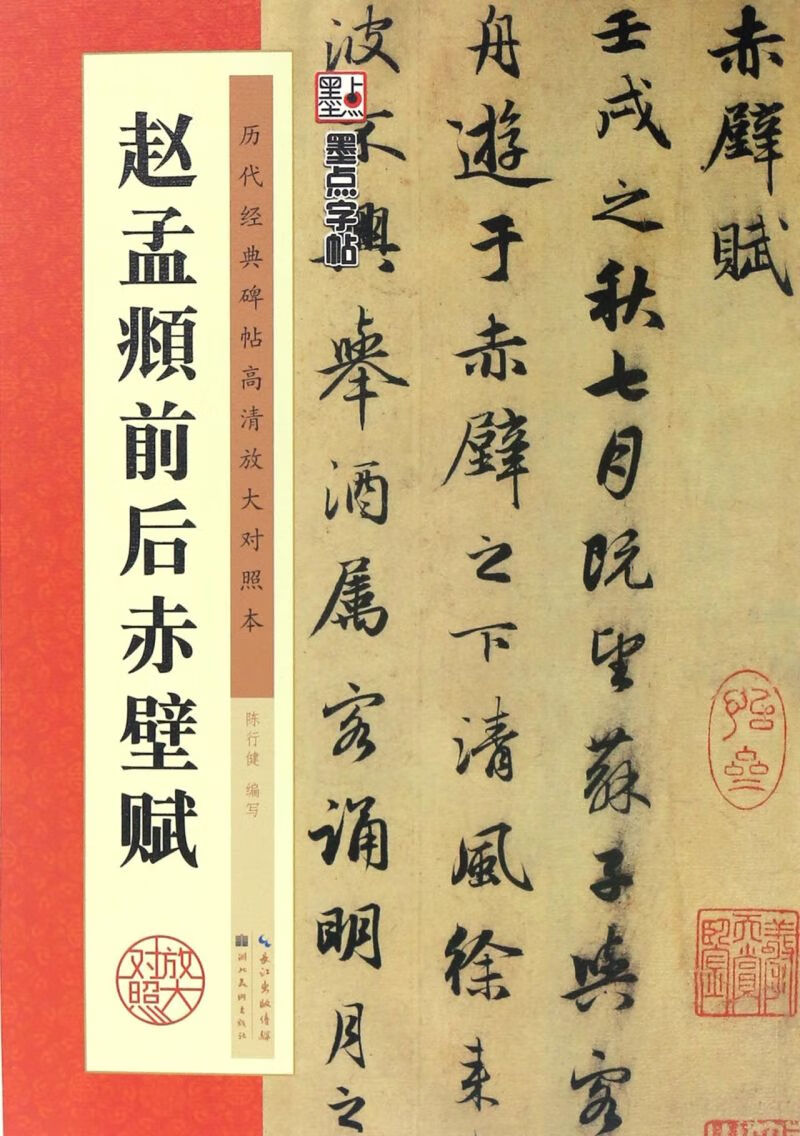 赵孟頫前后赤壁赋
历代经典碑帖高清放大对照本
陈行健 编写
放大
对照
长江出版传媒
湖北美术出版社
墨点
墨点字帖
赤壁賦
壬戌之秋七月既望蘇子與客
舟遊于赤壁之下清風徐来
波不興舉酒属客誦明月之